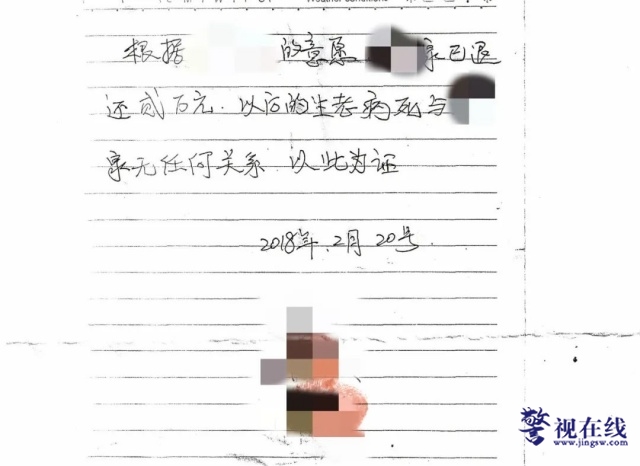 Weather conditions
根据 的意愿 家已退
还贰万元.以后的生老病死与
家无任何关系 以此为证
2018年.2月20号.
警视在线
www.jingsw.com